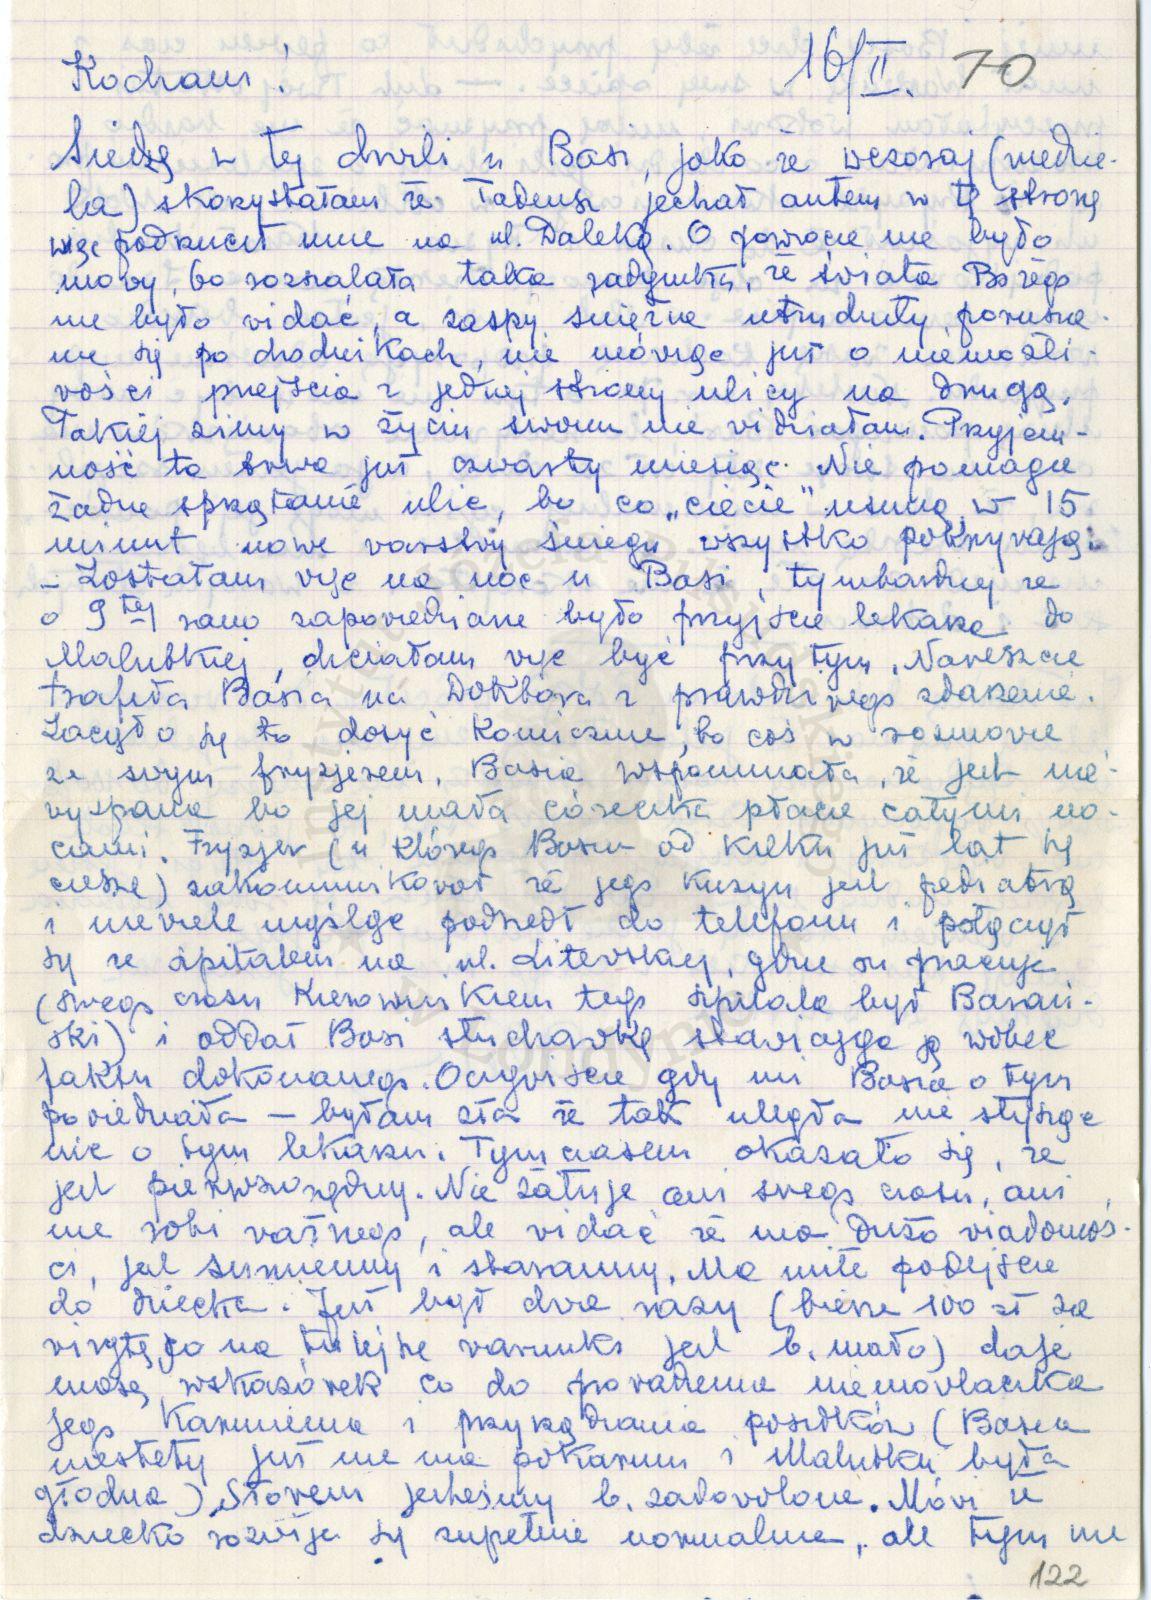 16/II. 70
Kochani!
Siedzę w tej chwili u Basi, jako że wczoraj (niedzie-
la) skorzystałam że Tadeusz jechał autem w tę stronę
więc podrzucił mnie na ul. Daleką. O powrocie nie było
mowy, bo rozszalała taka zadymka, że świata Bożego
nie było widać, a zaspy śnieżne utrudniły porusza-
nie się po chodnikach, nie mówiąc już o niemożli-
wości przejścia z jednej strony ulicy na drugą.
Takiej zimy w życiu swoim nie widziałam. Przyjem-
ność ta trwa już czwarty miesiąc. Nie pomaga
żadne sprzątanie ulic, bo co „ciecie" usuną w 15
minut nowe warstwy śniegu wszystko pokrywają.
– Zostałam więc na noc u Basi, tymbardziej że
o 9tej rano zapowiedziane było przyjście lekarza do
Malutkiej, chciałam więc być przy tym. Nareszcie
trafiła Basia na Doktora z prawdziwego zdarzenia.
Zaczęło się to dosyć komicznie, bo coś w rozmowie
ze swym fryzjerem, Basia wspomniała, że jest nie-
wyspana bo jej mała córeczka płacze całymi no-
cami. Fryzjer (u którego Basia od kilku już lat się
czesze) zakomunikował że jego kuzyn jest pediatrą
i niewiele myśląc podszedł do telefonu i połączył
się ze szpitalem na ul. Litewskiej, gdzie on pracuje
(swego czasu kierownikiem tego szpitala był Barań-
ski) i oddał Basi słuchawkę stawiając ją wobec
faktu dokonanego. Oczywiście gdy mi Basia o tym
powiedziała – byłam zła że tak uległa nie słysząc
nic o tym lekarzu. Tymczasem okazało się, że
jest pierwszorzędny. Nie żałuje ani swego czasu, ani
nie robi ważnego, ale widać że ma dużo wiadomoś-
ci, jest sumienny i staranny. Ma miłe podejście
do dziecka. Już był dwa razy (bierze 100 zł za
wizytę, co na tutejsze warunki jest b. mało) daje
masę wskazówek co do prowadzenia niemowlaczka
jego karmienia i przyrządzania posiłków (Basia
niestety już nie ma pokarmu i Malutka była
głodna). Słowem jesteśmy b. zadowolone. Mówi że
dziecko rozwija się zupełnie normalnie, ale tym nie
122